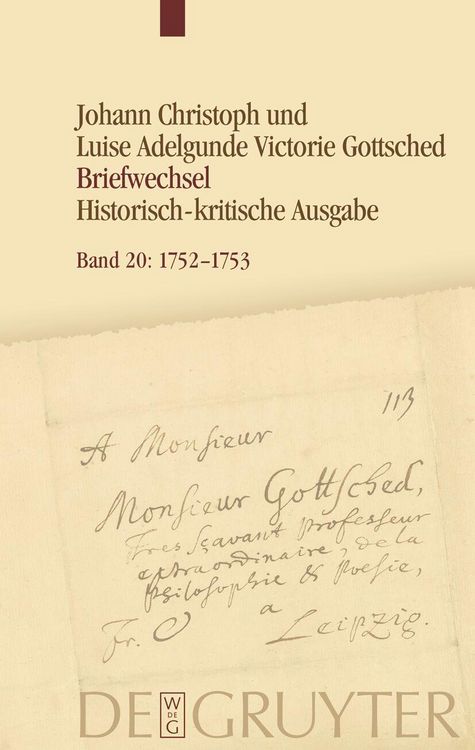 Johann Christoph und
Luise Adelgunde Victorie Gottsched
Briefwechsel
Historisch-kritische Ausgabe
Band 20: 1752–1753
113
A Monsieur
Monsieur Gottsched,
Tres sçavant Professeur
extraordinaire, de la
Philosophie & Poesie,
a
Fr.
Leipzig.
DE GRUYTER
W
DE
G